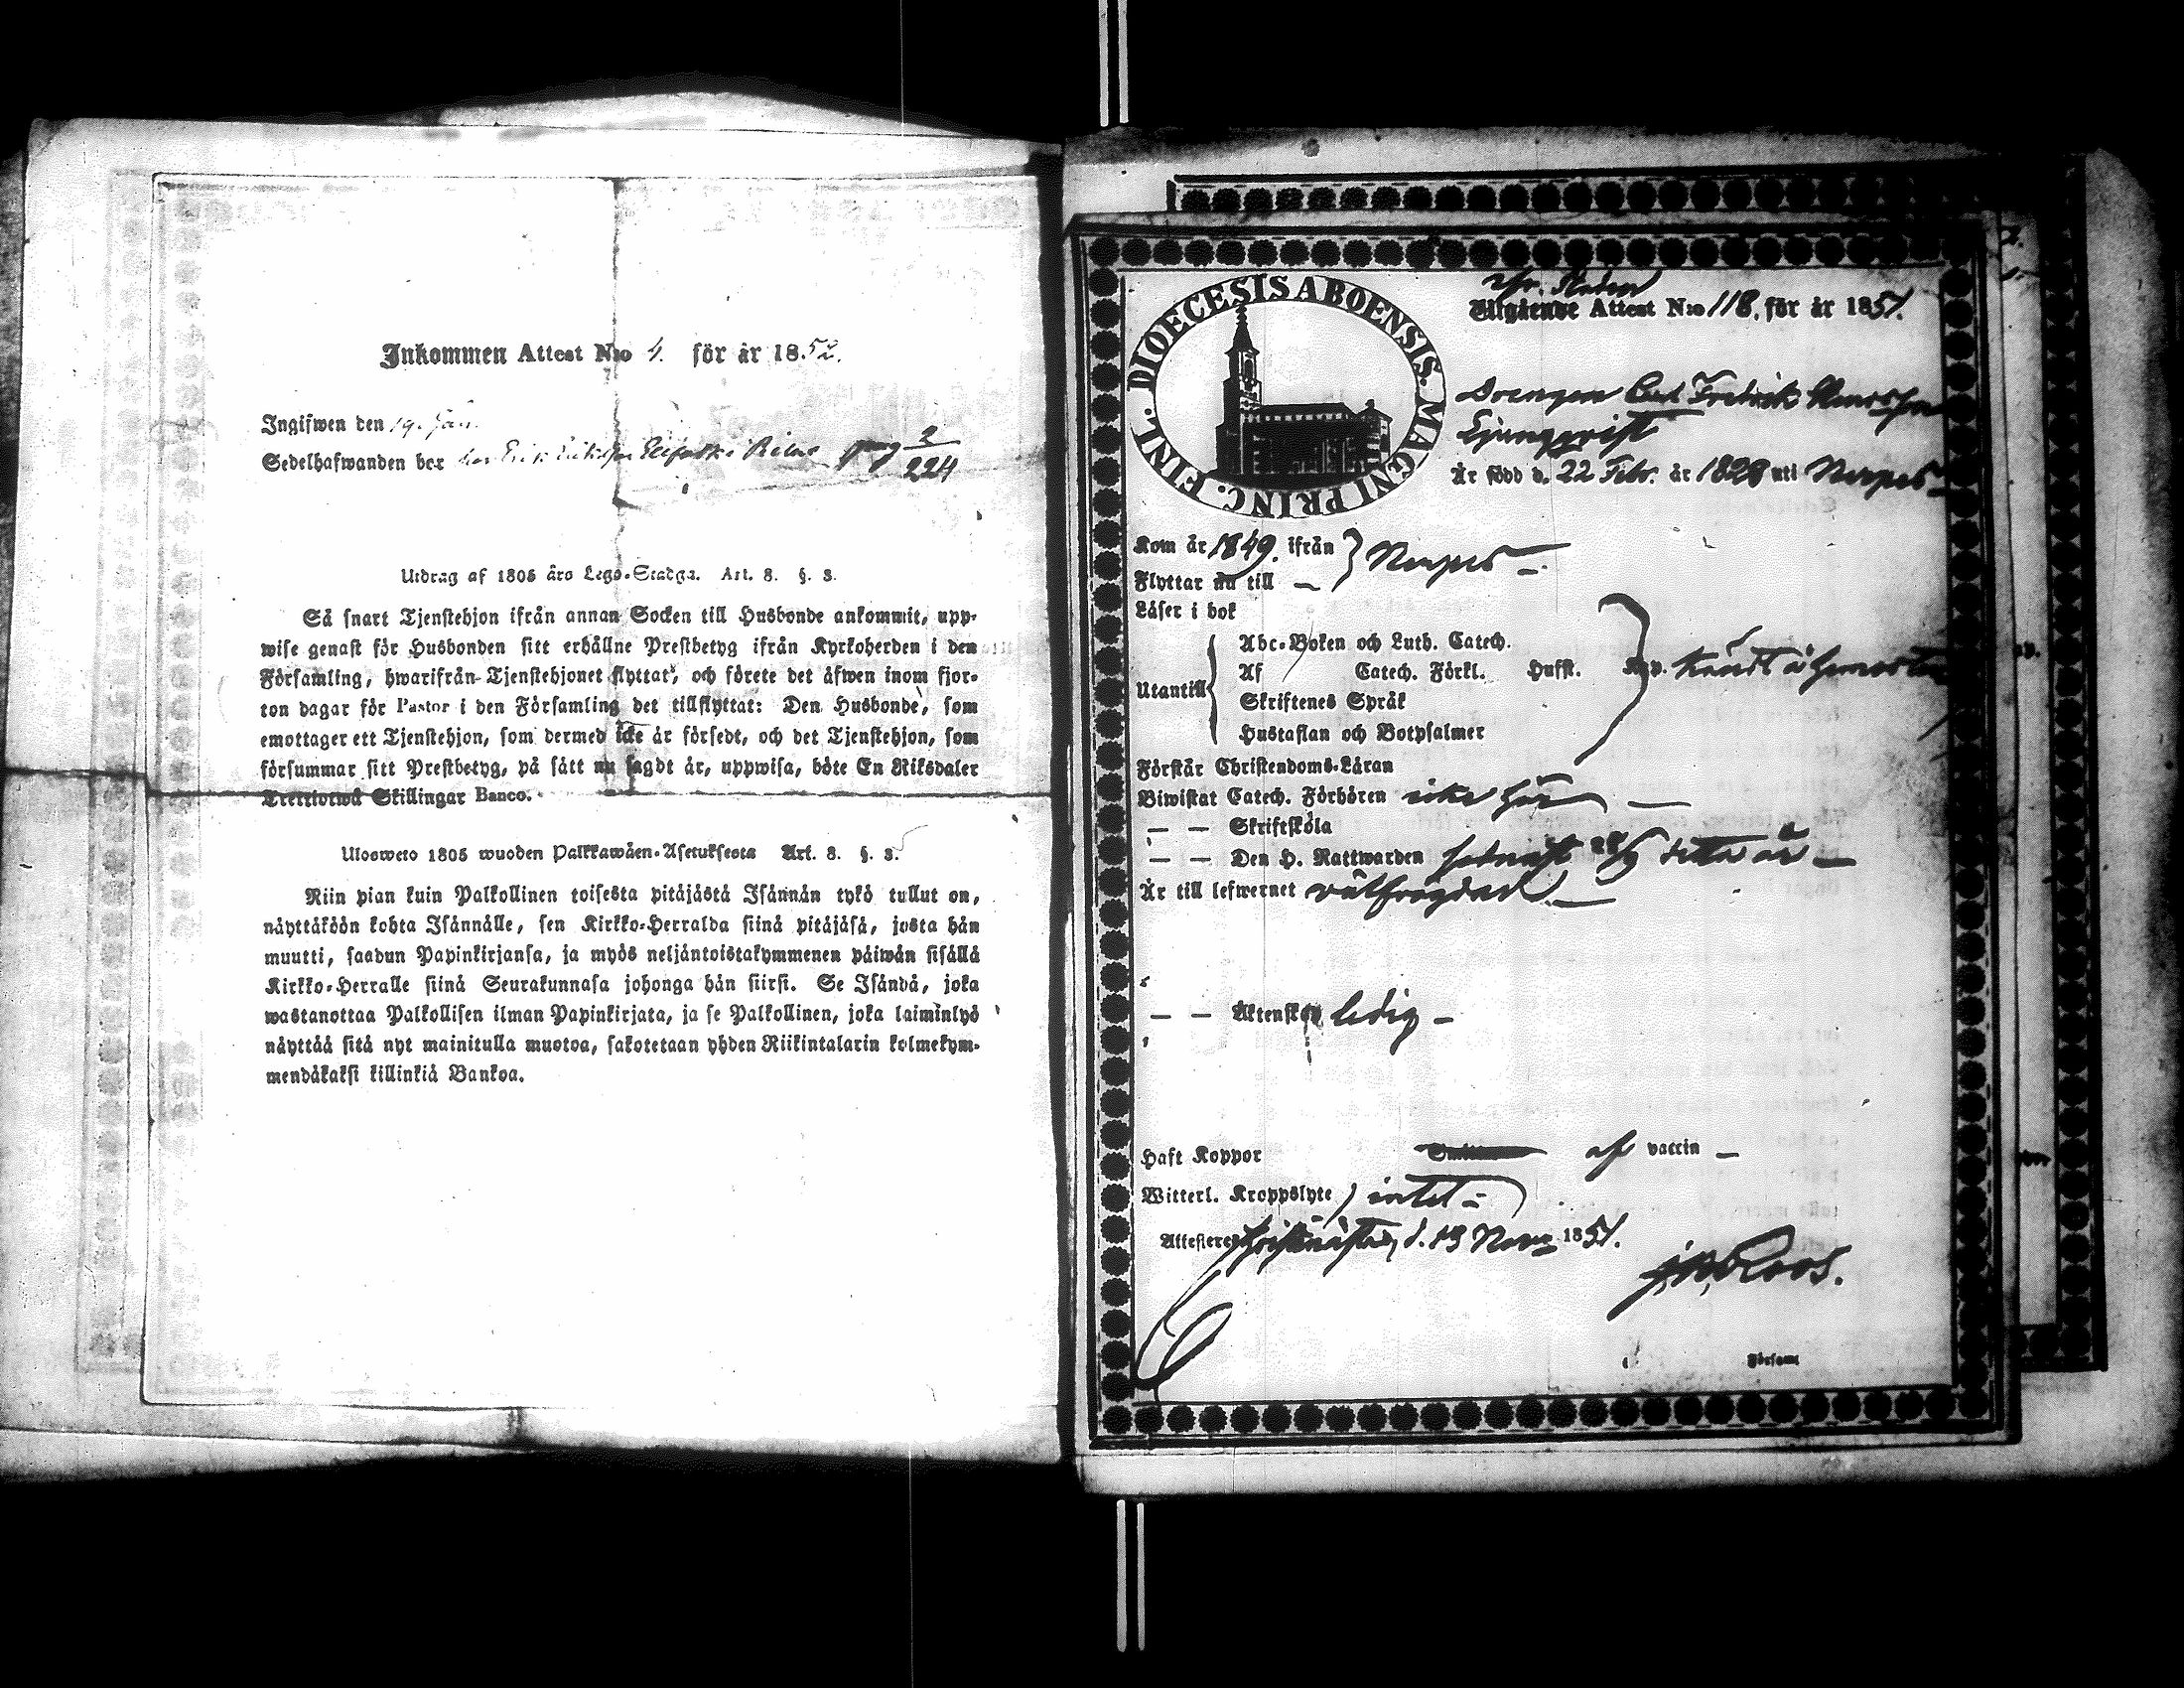 Inkommen Attest N:o 4. för år 1852.
Ingifwen den 19. Jan.
Sedelhafwanden bor hos Erik pag 3/224
Utdrag af 1805 års Lego-Stadga. Art. 8. §. 3.
Så snart Tjenstehjon ifrån annan Socken till Husbonde ankommit, upp-
wise genast för Husbonden sitt erhållne Prestbetyg ifrån Kyrkoherden i den
Församling, hwarifrån Tjenstehjonet flyttat, och förete det äfwen inom fjor-
ton dagar för Pastor i den Församling det tillflyttat: Den Husbonde, som
emottager ett Tjenstehjon, som dermed icke är försedt, och det Tjenstehjon, som
försummar sitt Prestbetyg, på sätt nu sagdt är, uppwisa, böte En Riksdaler
Trettiotwå Skillingar Banco.
Ulosweto 1805 wuoden Palkkawäen-Asetuksesta Art. 8. §. 3.
Niin pian kuin Palkollinen toisesta pitäjästä Isännän tykö tullut on,
näyttäköön kohta Isännälle, sen Kirkko-Herralda siinä pitäjäsä, josta hän
muutti, saadun Papinkirjansa, ja myös neljäntoistakymmenen päiwän sisällä
Kirkko-Herralle siinä Seurakunnasa johonga hän siirsi. Se Isändä, joka
wastanottaa Palkollisen ilman Papinkirjata, ja se Palkollinen, joka laiminlyö
näyttää sitä nyt mainitulla muotoa, sakotetaan yhden Riikintalarin kolmekym-
mendäkaksi killinkiä Bankoa.
DIOECESIS ABOENSIS. MAGNI PRINC. FINL.
Utgående Attest N:o 118. för år 1851.
Drengen Carl Fredrik
Ljungqvist
Är född d. 22 Febr. år 1828 uti Nerpes
Kom år 1849. ifrån } Nerpes
Flyttar nu till
Läser i bok
Abc-Boken och Luth. Catech.
Utantill Af Catech. Förkl. Hufst.
Skriftenes Språk
Hustaflan och Botpsalmer
Förstår Christendoms-Läran
Biwistat Catech. Förhören icke här
— — Skriftskola
— — Den H. Nattwarden sednast 28/9 detta år
Är till lefwernet välfrägdad
— — Äktenskap ledig
Haft Koppor af vaccin
Witterl. Kroppslyte intet
Attesterer Christinestad, d. 13 Novr 1851.
Roos.
Församl